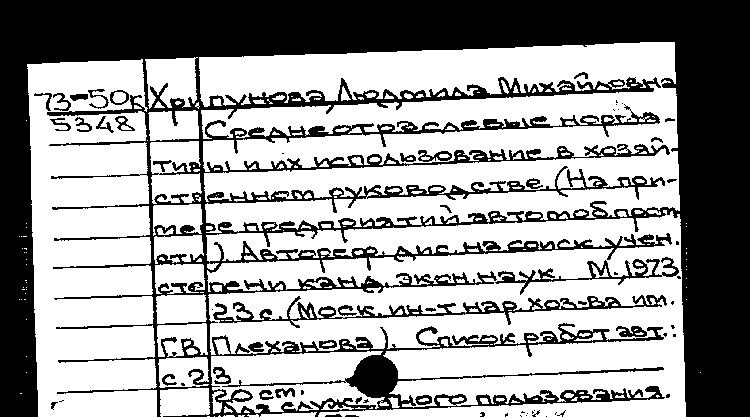 73-50к Хрипунова, Людмила Михайловна
5348 Среднеотраслевые норма-
тивы и их использование в хозяй-
ственном руководстве. (На при-
мере предприятий автомоб. пром-
сти). Автореф. дис. на соиск. учен.
степени канд. экон. наук. М., 1973.
23 с. (Моск. ин-т нар. хоз-ва им.
Г.В. Плеханова). Список работ авт.:
с. 23.
20 см.
Для служебного пользования.